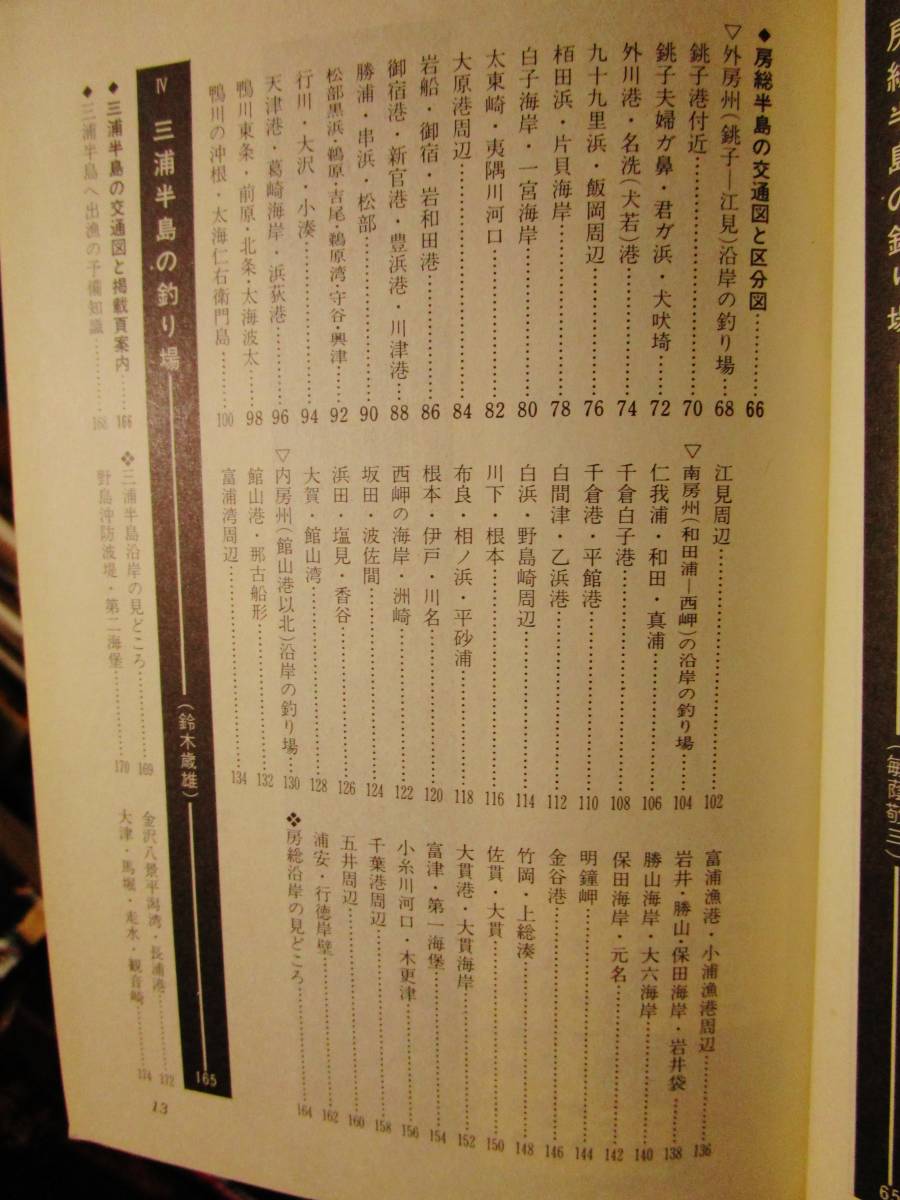 房総半島の釣り場
(敏蔭敬三)
65
◆房総半島の交通図と区分図…………66
▽外房州(銚子―江見)沿岸の釣り場…68
銚子港付近…………70
銚子夫婦ガ鼻・君ガ浜・犬吠埼…………72
外川港・名洗(犬若)港…………74
九十九里浜・飯岡周辺…………76
栢田浜・片貝海岸…………78
白子海岸・一宮海岸…………80
太東崎・夷隅川河口…………82
大原港周辺…………84
岩船・御宿・岩和田港…………86
御宿港・新官港・豊浜港・川津港…………88
勝浦・串浜・松部…………90
松部黒浜・鵜原・吉尾・鵜原湾・守谷・興津…………92
行川・大沢・小湊…………94
天津港・葛崎海岸・浜荻港…………96
鴨川東条・前原・北条・太海波太…………98
鴨川の沖根・太海仁右衛門島…………100
江見周辺…………102
▽南房州(和田浦―西岬)の沿岸の釣り場…104
仁我浦・和田・真浦…………106
千倉白子港…………108
千倉港・平館港…………110
白間津・乙浜港…………112
白浜・野島崎周辺…………114
川下・根本…………116
布良・相ノ浜・平砂浦…………118
根本・伊戸・川名…………120
西岬の海岸・洲崎…………122
坂田・波佐間…………124
浜田・塩見・香谷…………126
大賀・館山湾…………128
▽内房州(館山港以北)沿岸の釣り場…130
館山港・那古船形…………132
富浦湾周辺…………134
富浦漁港・小浦漁港周辺…………136
岩井・勝山・保田海岸・岩井袋…………138
勝山海岸・大六海岸…………140
保田海岸・元名…………142
明鐘岬…………144
金谷港…………146
竹岡・上総湊…………148
佐貫・大貫…………150
大貫港・大貫海岸…………152
富津・第一海堡…………154
小糸川河口・木更津…………156
千葉港周辺…………158
五井周辺…………160
浦安・行徳岸壁…………162
❖房総沿岸の見どころ…………164
Ⅳ 三浦半島の釣り場――(鈴木歳雄)――165
◆三浦半島の交通図と掲載頁案内…………166
◆三浦半島へ出漁の予備知識…………168
❖三浦半島沿岸の見どころ…………169
野島沖防波堤・第二海堡…………170
金沢八景平潟湾・長浦港…………172
大津・馬堀・走水・観音崎…………174
13